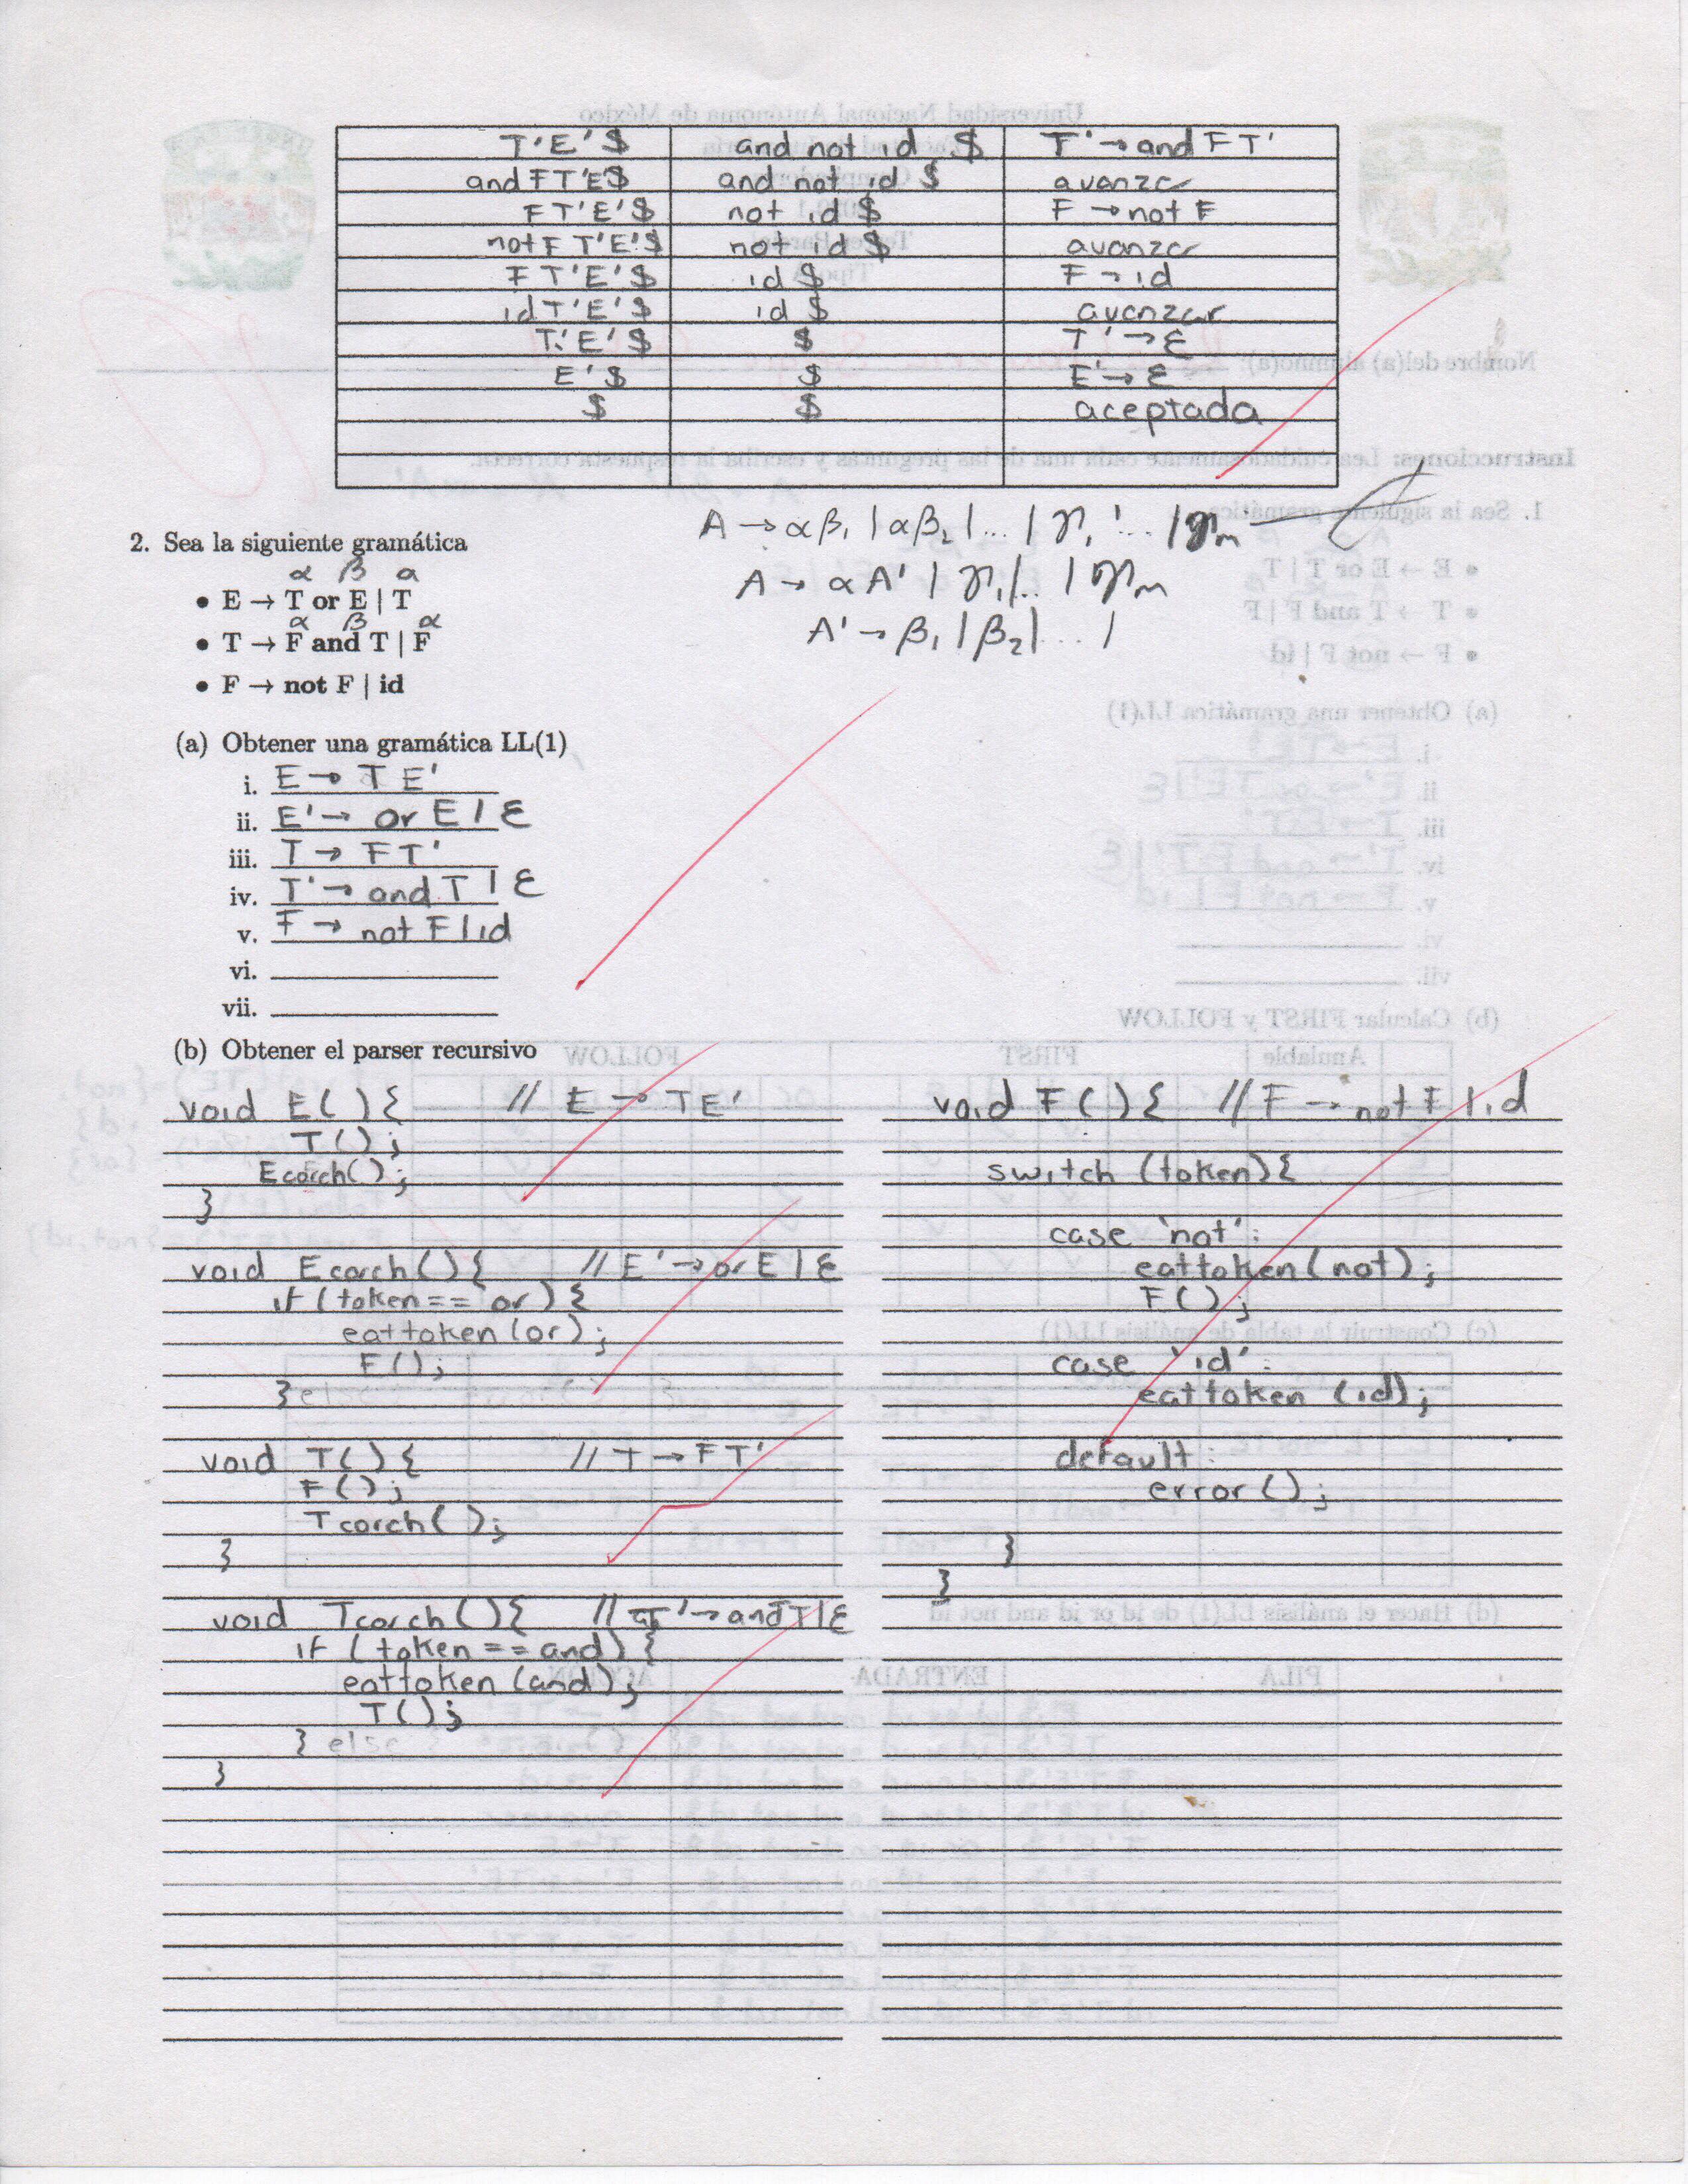 T'E'$ and not id $ T' → and F T'
and F T'E'$ and not id $ avanzar
F T'E'$ not id $ F → not F
not F T'E'$ not id $ avanzar
F T'E'$ id $ F → id
id T'E'$ id $ avanzar
T'E'$ $ T' → ε
E'$ $ E' → ε
$ $ aceptada
A → αβ₁ | αβ₂ | ... | γ₁ | ... | γₘ
A → αA' | γ₁ | .. | γₘ
A' → β₁ | β₂ | ... |
2. Sea la siguiente gramática
α β α
• E → T or E | T
α β α
• T → F and T | F
• F → not F | id
(a) Obtener una gramática LL(1)
i. E → T E'
ii. E' → or E | ε
iii. T → F T'
iv. T' → and T | ε
v. F → not F | id
vi.
vii.
(b) Obtener el parser recursivo
void E( ) { // E → TE'
T( );
Ecorch( );
}
void Ecorch( ) { // E' → or E | ε
if (token == or) {
eattoken (or);
E( );
} else
void T( ) { // T → F T'
F( );
Tcorch( );
}
void Tcorch( ) { // T' → and T | ε
if (token == and) {
eattoken (and);
T( );
} else
}
void F( ) { // F → not F | id
switch (token) {
case 'not':
eattoken (not);
F( );
case 'id':
eattoken (id);
default:
error( );
}
}